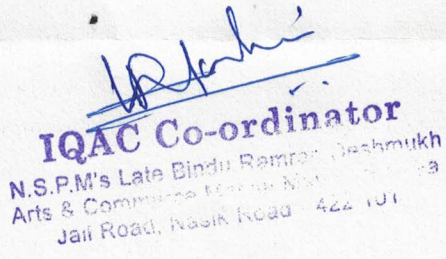 IQAC Co-ordinator
N.S.P.M's Late Bindu Ramrao Deshmukh
Arts & Commerce
Jail Road, Nasik Road - 422 101